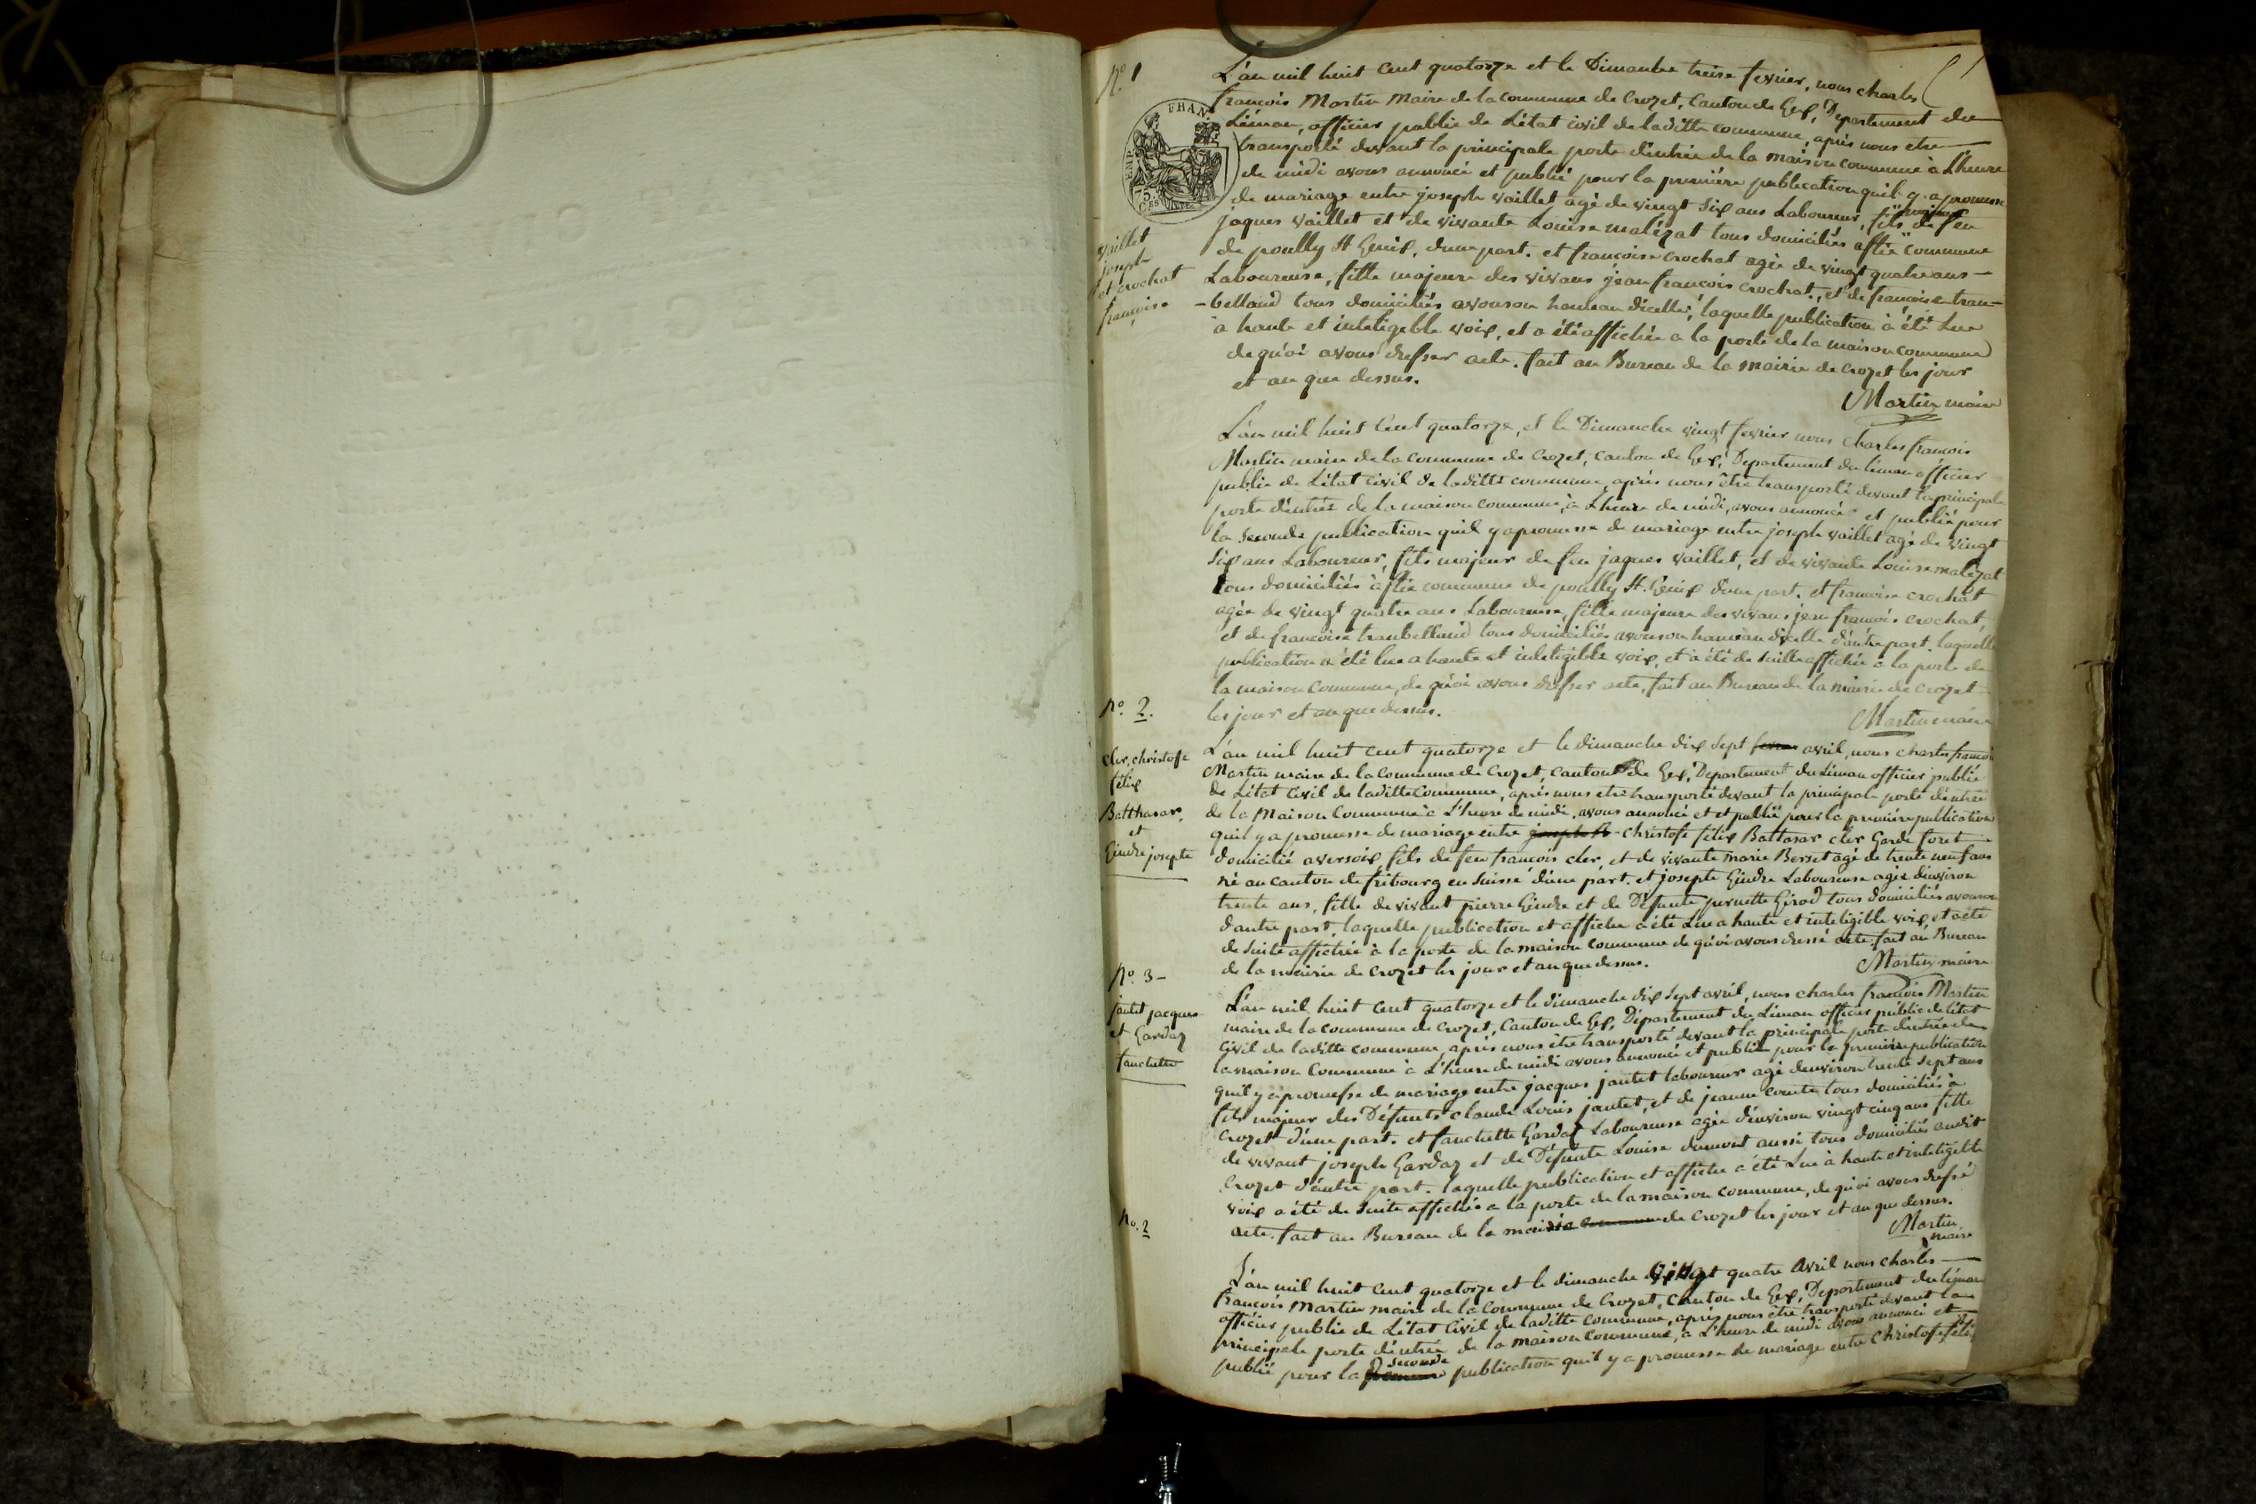 1
N.º 1
L'an mil huit Cent quatorze et le Dimanche treise fevrier, nous charles
françois Martin Maire de la commune de Crozet, Canton de Gex, Departement du
Léman, officier public de L'état civil de laditte commune, après nous etre
transporté devant la principale porte d'entrée de la maison commune à L'heure
de midi avons annoncé et publié pour la première publication quil y a promesse
de mariage entre joseph vaillet agé de vingt six ans Laboureur, fils de feu
jaques vaillet et de vivante Louise malézat tous domiciliés aflié commune
de poully St Genix, dune part. et françoise crochat agée de vingt quatre ans
Laboureuse, fille majeure des vivans jean françois crochat, et de françoise tran-
-belland tous domiciliés avouson hameau d'icelle, laquelle publication à été Lue
à haute et inteligible voix, et a été affichée a la porte de la maison commune
de quoi avons dresser acte. fait au Bureau de la mairie de crozet les jour
et an que dessus.
Martin maire
EMP. FRAN.
75
CES
vaillet
joseph
et crochat
françoise
L'an mil huit Cent quatorze, et le Dimanche vingt fevrier nous Charles françois
Martin maire de la Commune de Crozet, canton de Gex, Departement du Léman officier
public de L'état civil de laditte commune, après nous être transporté devant la principale
porte d'entrée de la maison commune, à L'heure de midi, avons annoncés et publié pour
la seconde publication quil y a promesse de mariage entre joseph vaillet agé de vingt
six ans Laboureur, fils majeur de feu jaques vaillet, et de vivante Louise malézat
tous domiciliés à flié commune de poully St. Genix dune part. et françoise crochat
agée de vingt quatre ans Laboureuse, fille majeure des vivans jean françois crochat,
et de françoise tranbelland tous domiciliés avouson hameau d'icelle d'autre part. laquelle
publication a été lue a haute et inteligible voix, et a été de suitte affichée a la porte de
la maison commune, de quoi avons dresser acte, fait au Bureau de la mairie de crozet
les jour et an que dessus.
Martin maire
N.º 2.
cler, christofe
félix
Balthasar,
et
Gindre josepte
L'an mil huit cent quatorze et le dimanche dix sept avril, nous charles françois
Martin maire de la Commune de Crozet, canton de Gex, Departement du Léman officier public
de L'état civil de laditte Commune, après nous etre transporté devant la principale porte d'entrée
de la Maison Commune à L'heure de midi, avons annoncé et et publié pour la première publication
quil y a promesse de mariage entre christofe félix Baltasar cler Garde foret
domicilié a versoix, fils de feu françois cler, et de vivante marie Berset agé de trente neuf ans
né au canton de fribourg en Suisse d'une part. et josepte Gindre Laboureuse agée d'environ
trente ans, fille de vivant pierre Gindre et de Défunte pernette Girod tous domiciliés avouson
d'autre part, laquelle publication et affiche a été Lue a haute et inteligible voix, et a été
de Suite affichée à la porte de la maison commune de quoi avons dressé acte. fait au Bureau
de la mairie de crozet les jour et an que dessus.
Martin maire
N.º 3
jantet jacques
et Gardaz
fanchette
L'an mil huit cent quatorze et le dimanche dix sept avril, nous charles françois Martin
maire de la commune de crozet, Canton de Gex, Département du Léman officier public de L'état
civil de laditte commune après nous être transporté devant la principale porte d'entrée de
la maison Commune à L'heure de midi avons annoncé et publié pour la première publication
quil y a promesse de mariage entre jacques jantet laboureur agé d'environ trente sept ans
fils majeur des Défunts claude Louis jantet, et de jeanne comte tous domiciliés à
crozet d'une part. et fanchette Gardaz Laboureuse agée d'environ vingt cinq ans fille
de vivant joseph Gardaz et de Défunte Louise dumont aussi tous domiciliés audit
Crozet d'autre part. laquelle publication et affiche a été Lue à haute et inteligible
voix a été de suite affichée a la porte de la maison commune, de quoi avons dressé
acte. fait au Bureau de la mairie commune de Crozet les jour et an que dessus.
Martin
maire
No. 2
L'an mil huit Cent quatorze et le dimanche vingt quatre Avril nous charles
françois Martin maire de la Commune de Crozet, Canton de Gex, Departement du Léman
officier public de L'état Civil de laditte commune, après nous être transporté devant la
principale porte d'entrée de la maison commune, a L'heure de midi avons annoncé et
publié pour la seconde publication quil y a promesse de mariage entre Christofe féli